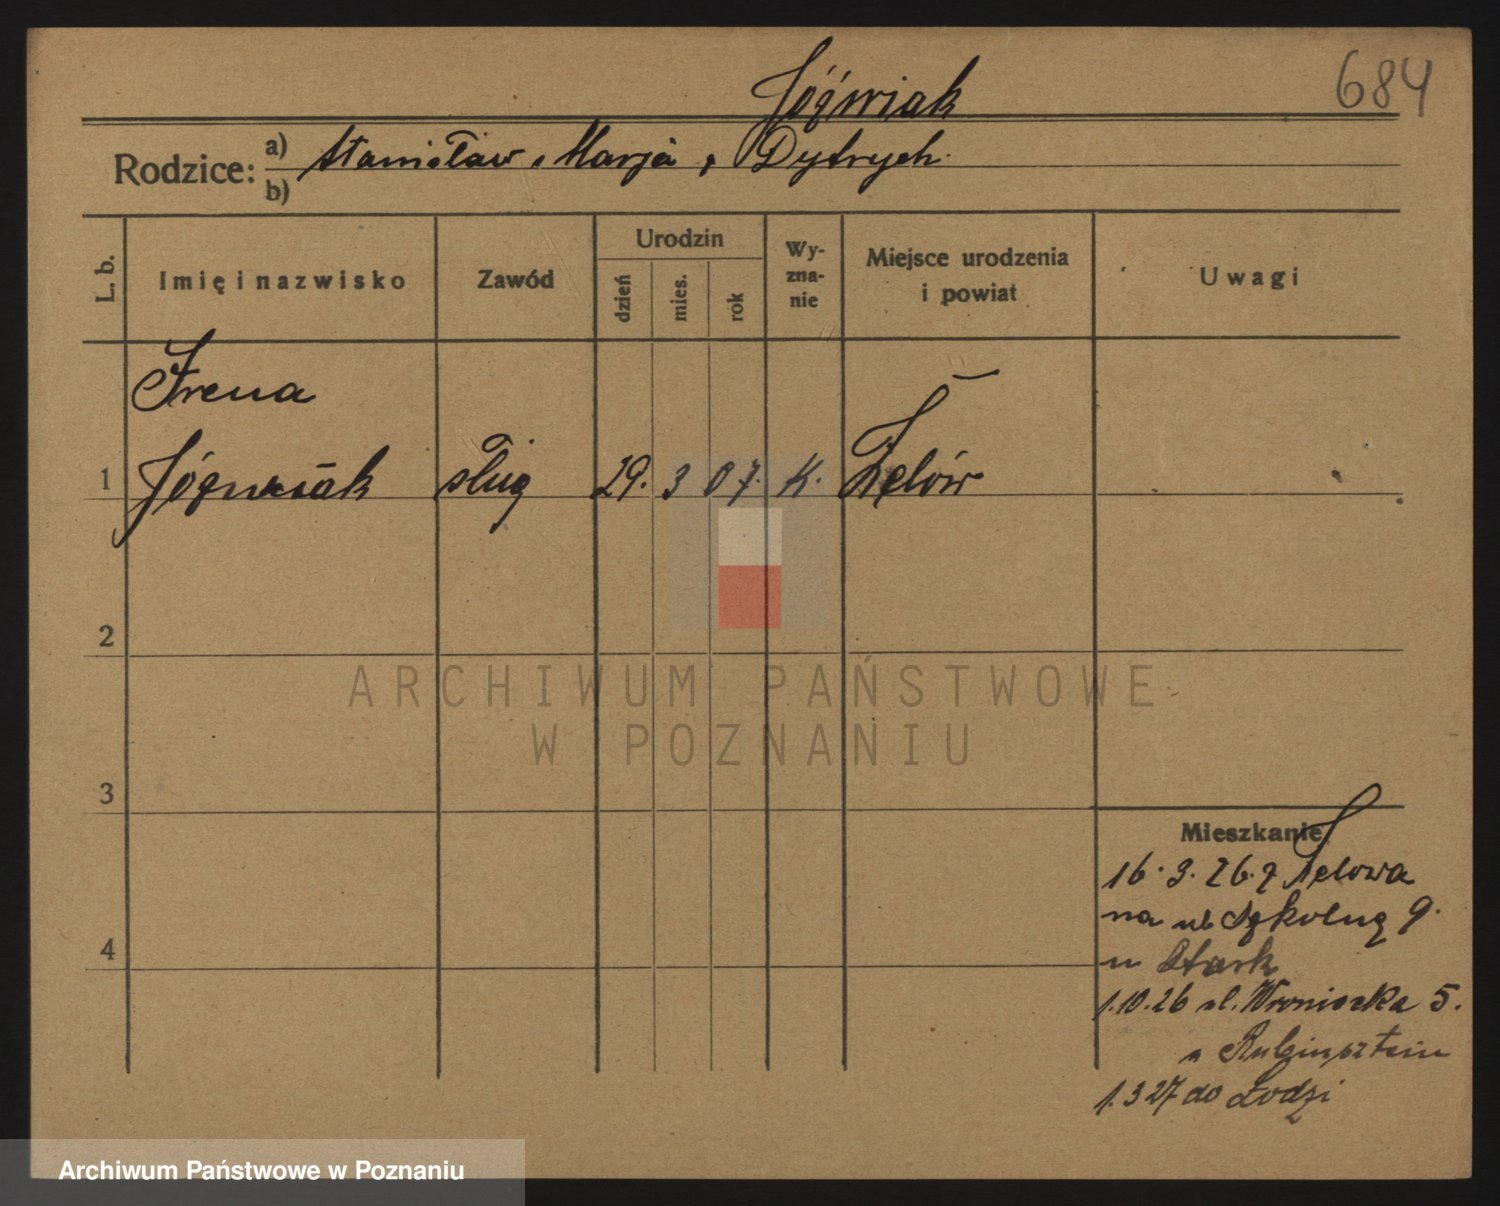 684
Jóźwiak
Rodzice: a) Stanisław, Marja, Dytrych
b)
L. b.
Imię i nazwisko
Zawód
Urodzin
dzień
mies.
rok
Wy-
zna-
nie
Miejsce urodzenia
i powiat
Uwagi
Irena
1 Józwiak służ 29. 3 07. K. Zelów
2
3
4
ARCHIWUM PAŃSTWOWE
W POZNANIU
Mieszkanie
16.3.26. z Zelowa
na ul Szkolną 9.
u Stark
1.10.26 ul. Wroniecka 5.
u Rubinsztein
1.3 27 do Łodzi
Archiwum Państwowe w Poznaniu